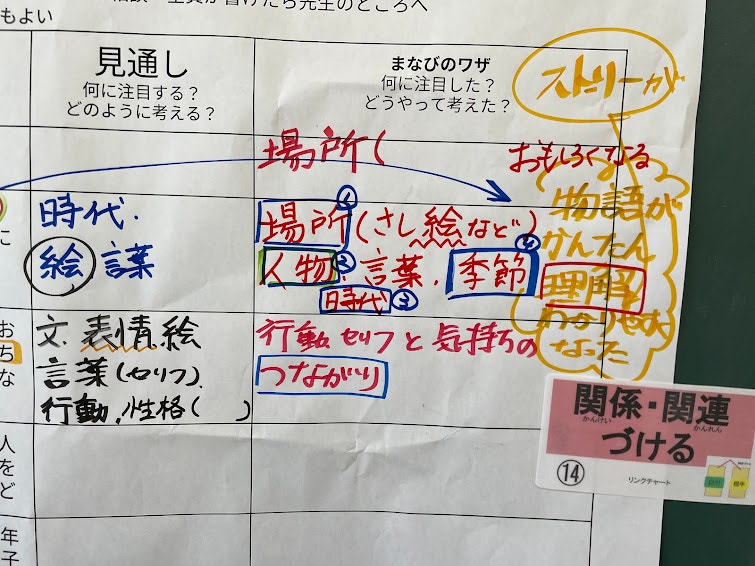 もよい
見通し
何に注目する?
どのように考える?
まなびのワザ
何に注目した?
どうやって考えた?
ストーリーが
おもしろくなる
場所(
時代.
絵 言葉
に
①
場所(さし絵など)
人物② 言葉. 季節④
時代③
物語が
かんたん
理解
わかりやすく
なった
おちな
文.表情 絵
言葉(セリフ).
行動.性格( )
行動 セリフと気持ちの
つながり
人をど
年子
関係・関連
かんけい かんれん
づける
⑭
リンクチャート